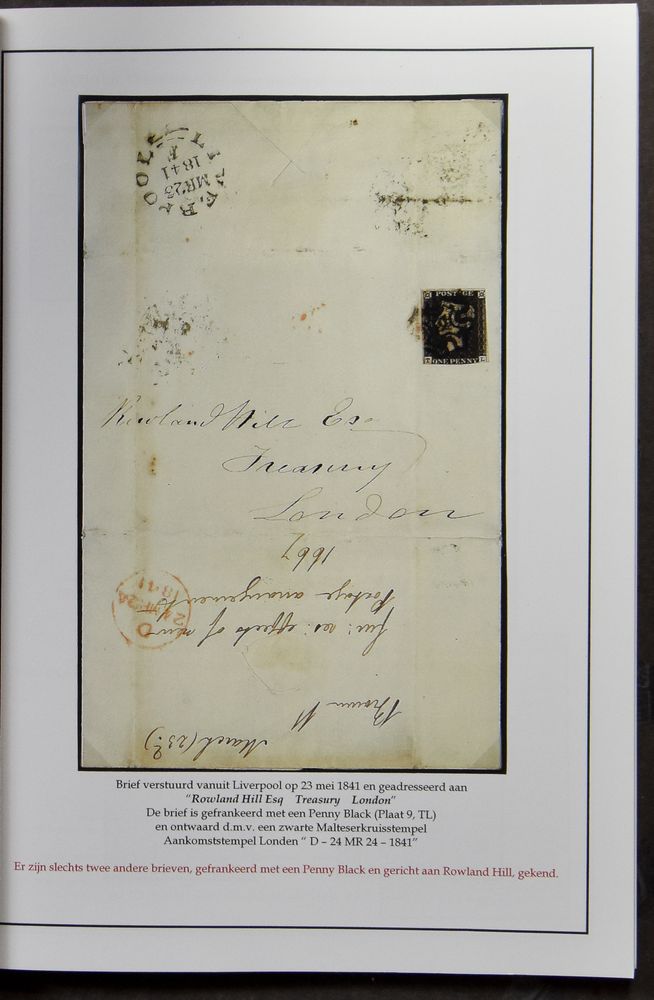 LIVERPOOL
F
1841
MR 23
POSTAGE
ONE PENNY
T L
Rowland Hill Esq
Treasury
London
1667
Postage arrangement
effects of new
D
24 MR 24
1841
Brown W
March (23d)
Brief verstuurd vanuit Liverpool op 23 mei 1841 en geadresseerd aan
"Rowland Hill Esq Treasury London"
De brief is gefrankeerd met een Penny Black (Plaat 9, TL)
en ontwaard d.m.v. een zwarte Malteserkruisstempel
Aankomststempel Londen " D – 24 MR 24 – 1841"
Er zijn slechts twee andere brieven, gefrankeerd met een Penny Black en gericht aan Rowland Hill, gekend.